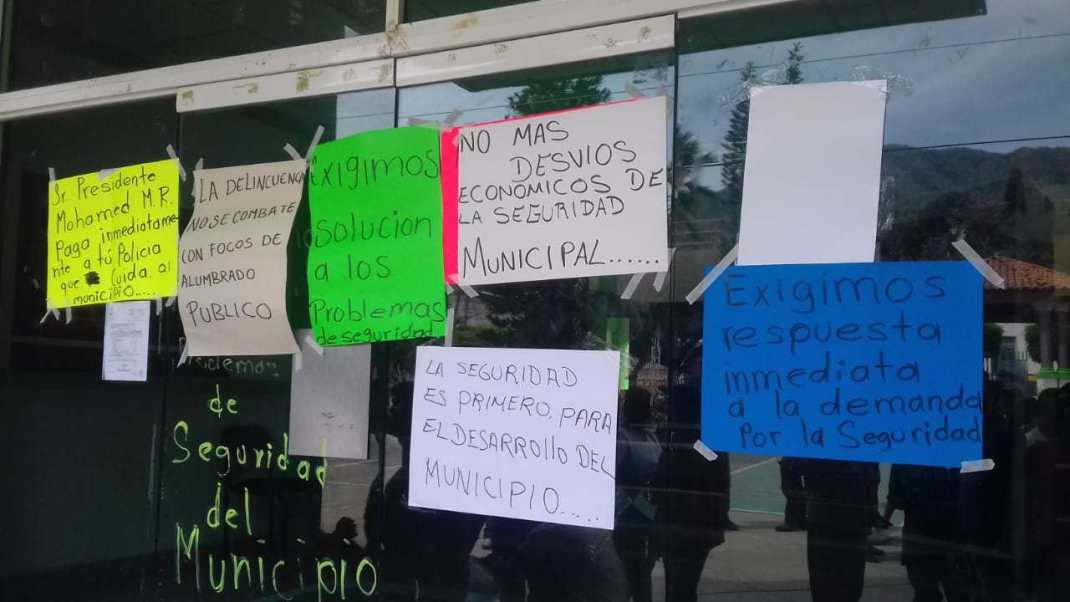 Sr. Presidente
Mohamed M.R.
Paga inmediatame
nte a tú Policia
que Cuida al
municipio....
LA DELINCUENC
NO SE COMBATE
CON FOCOS DE
ALUMBRADO
PUBLICO
Exigimos
solucion
a los
Problemas
de seguridad
NO MAS
DESVIOS
ECONOMICOS DE
LA SEGURIDAD
MUNICIPAL......
LA SEGURIDAD
ES PRIMERO, PARA
EL DESARROLLO DEL
MUNICIPIO.....
Exigimos
respuesta
inmediata
a la demanda
Por la Seguridad
de
Seguridad
del
Municipio